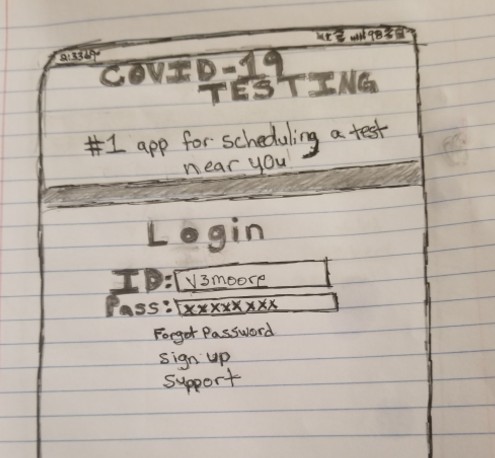 COVID-19
TESTING
#1 app for scheduling a test
near you
Login
ID: v3moore
Pass: xxxxxxxx
Forgot Password
Sign up
Support